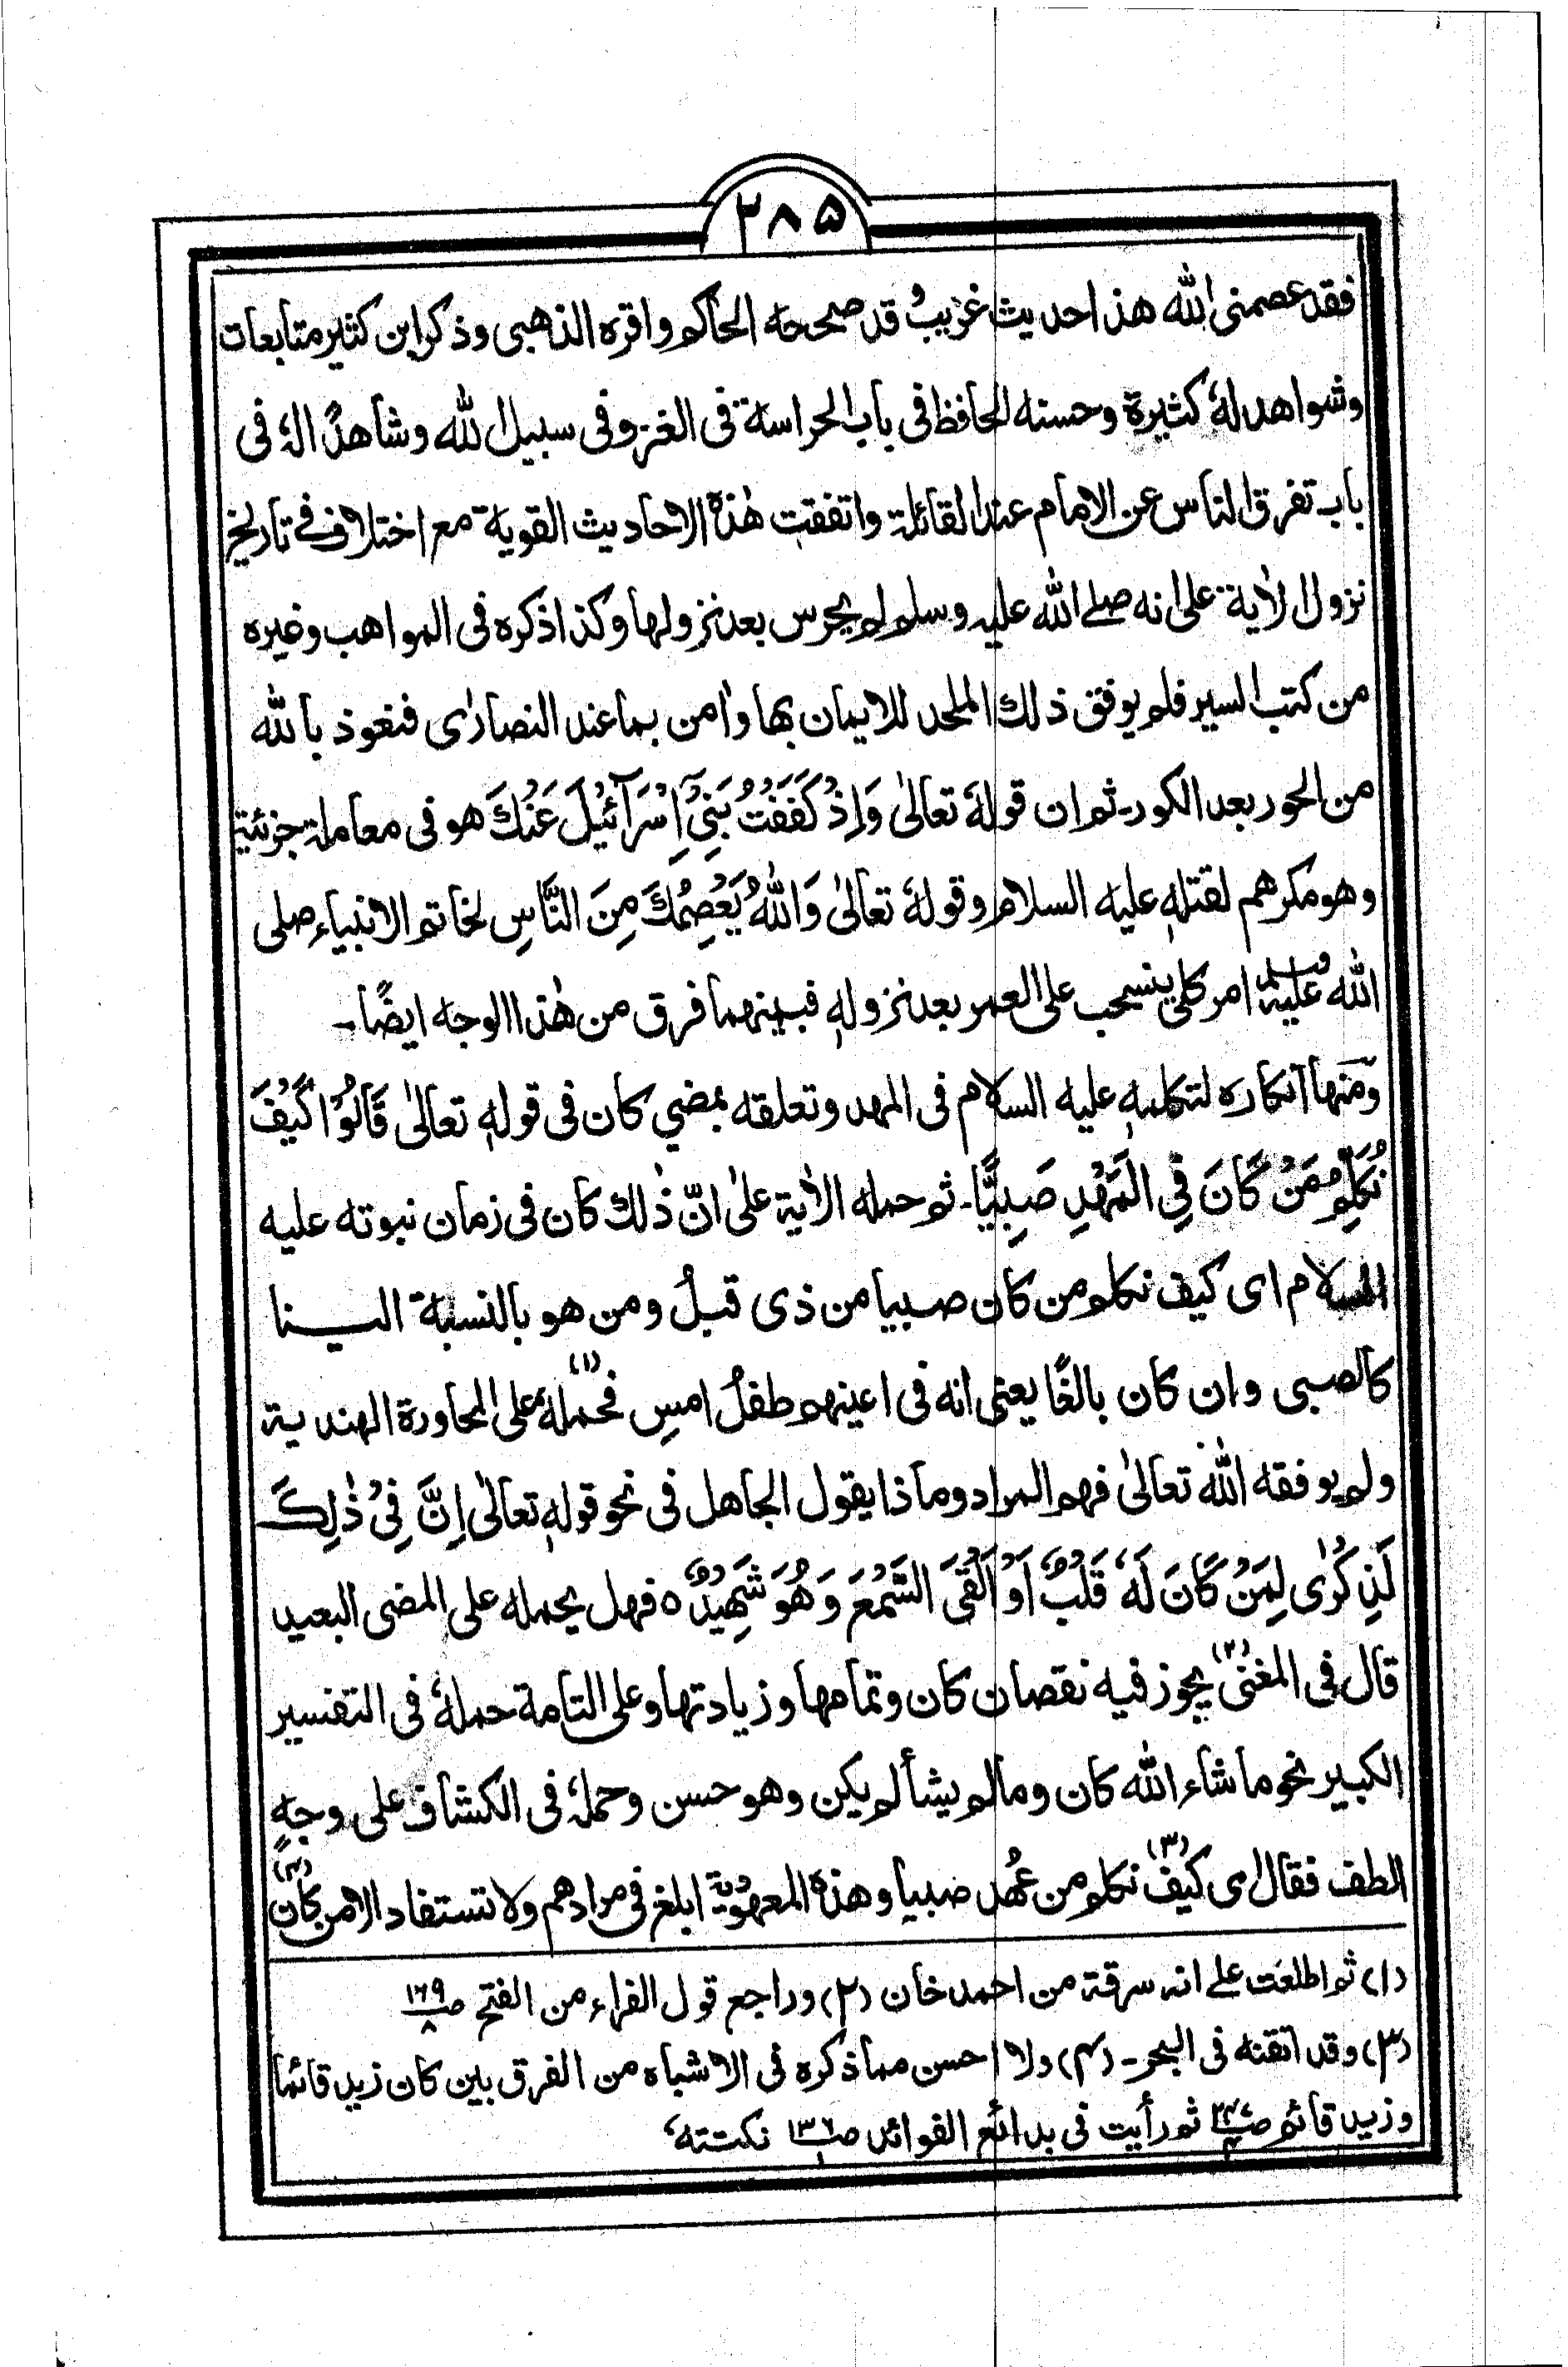 ۲۸۵
فقد عصمنی الله هذا حدیث غریبٌ قد صححه الحاکم واقره الذهبی وذکر ابن کثیر متابعات
وشواهد لهٗ کثیرة وحسنه الحافظ فی باب الحراسة فی الغزو فی سبیل الله وشاهدًا لهٗ فی
باب تفرق الناس عن الامام عند القائلة واتفقت هٰذه الاحادیث القویة مع اختلاف فی تاریخ
نزول الاٰیة علی انه صلے الله علیه وسلم لم یحرس بعد نزولها وکذا ذکره فی المواهب وغیره
من کتب السیر فلم یوفق ذلك الملحد للایمان بها واٰمن بما عند النصارٰی فنعوذ بالله
من الحور بعد الکور۔ ثم ان قولهٗ تعالیٰ وَاِذْ کَفَفْتُ بَنِیْٓ اِسْرَآئِیْلَ عَنْكَ هو فی معاملة جزئیة
وهو مکرهم لقتلهٖ علیه السلام وقولهٗ تعالیٰ وَاللهُ یَعْصِمُكَ مِنَ النَّاسِ لخاتم الانبیاء صلی
الله علیه وسلم امر کلی ینسحب علی العمر بعد نزولهٖ فبینهما فرق من هٰذا الوجه ایضًا۔
ومنها انکاره لتکلمهٖ علیه السلام فی المهد وتعلقه بمضی کان فی قولهٖ تعالیٰ قَالُوْا کَیْفَ
نُکَلِّمُ مَنْ کَانَ فِی الْمَهْدِ صَبِیًّا۔ ثم حمله الاٰیة علیٰ انّ ذٰلك کان فی زمان نبوته علیه
السلام ای کیف نکلم من کان صبیا من ذی قبلُ ومن هو بالنسبة الینا
کالصبی وان کان بالغًا یعنی انه فی اعینهم طفلُ امسِ فحملهٗ (۱) علی المحاورة الهندیة
ولم یوفقه اللهُ تعالیٰ فهم المراد وماذا یقول الجاهل فی نحو قولهٖ تعالیٰ اِنَّ فِیْ ذٰلِكَ
لَذِکْرٰی لِمَنْ کَانَ لَهٗ قَلْبٌ اَوْ اَلْقَی السَّمْعَ وَهُوَ شَهِیْدٌ ۵ فهل یحمله علی المضی البعید
قال فی المغنی (۲) یجوز فیه نقصان کان وتمامها وزیادتها وعلی التامة حملهٗ فی التفسیر
الکبیر نحو ما شاء الله کان وما لم یشأ لم یکن وهو حسن وحملهٗ فی الکشاف علی وجهٍ
الطف فقال ای کیف (۳) نکلم من عُهِد صبیا وهذه المعهودیة ابلغ فی مرادهم ولا تستفاد الا من کان (۴)
(۱) ثم اطلعت علے انه سرقة من احمد خان (۲) وراجع قول الفراء من الفتح صـ ۱۶۹/۸
(۳) وقد اتقنه فی البحر۔ (۴) ولا احسن مما ذکره فی الاشباه من الفرق بین کان زید قائما
وزید قائم صـ ثم رأیت فی بدائع الفوائد صـ ۱۳۶/۱ نکتتهٗ